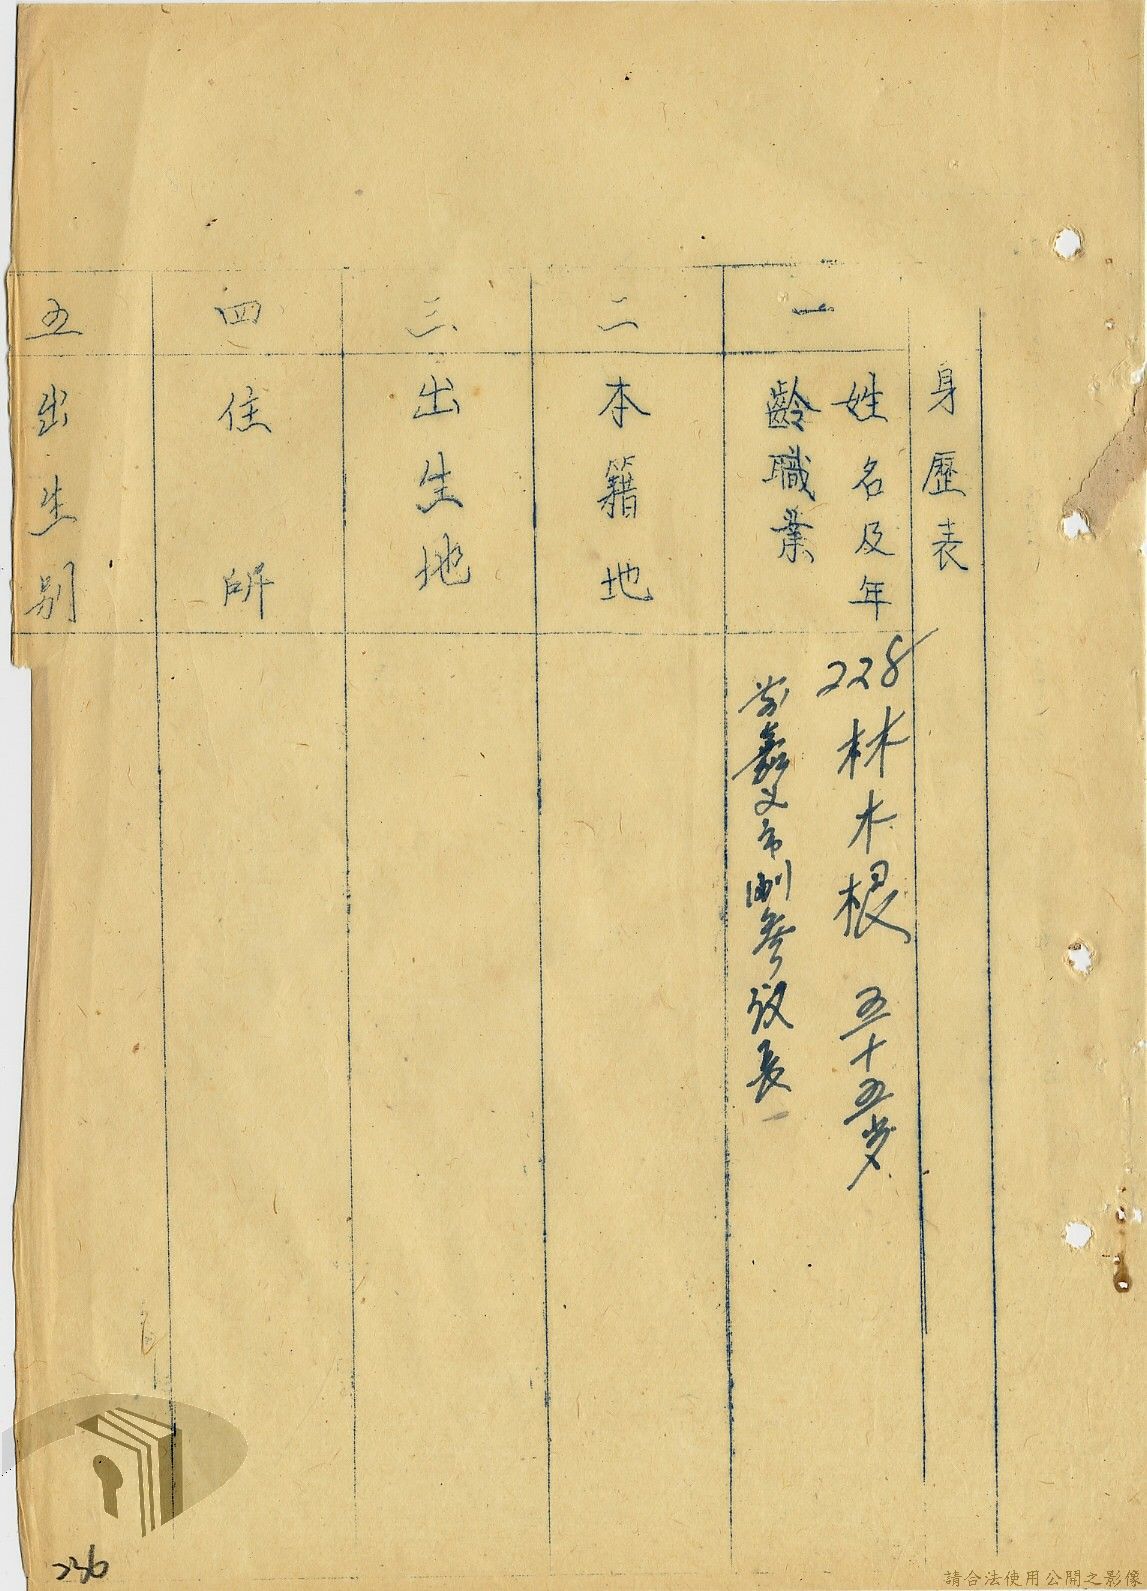 身歷表
一
姓名及年
齡職業
228
林木根 五十五歲
前嘉义市副參议長
二
本籍地
三
出生地
四
住所
五
出生別
236
請合法使用公開之影像